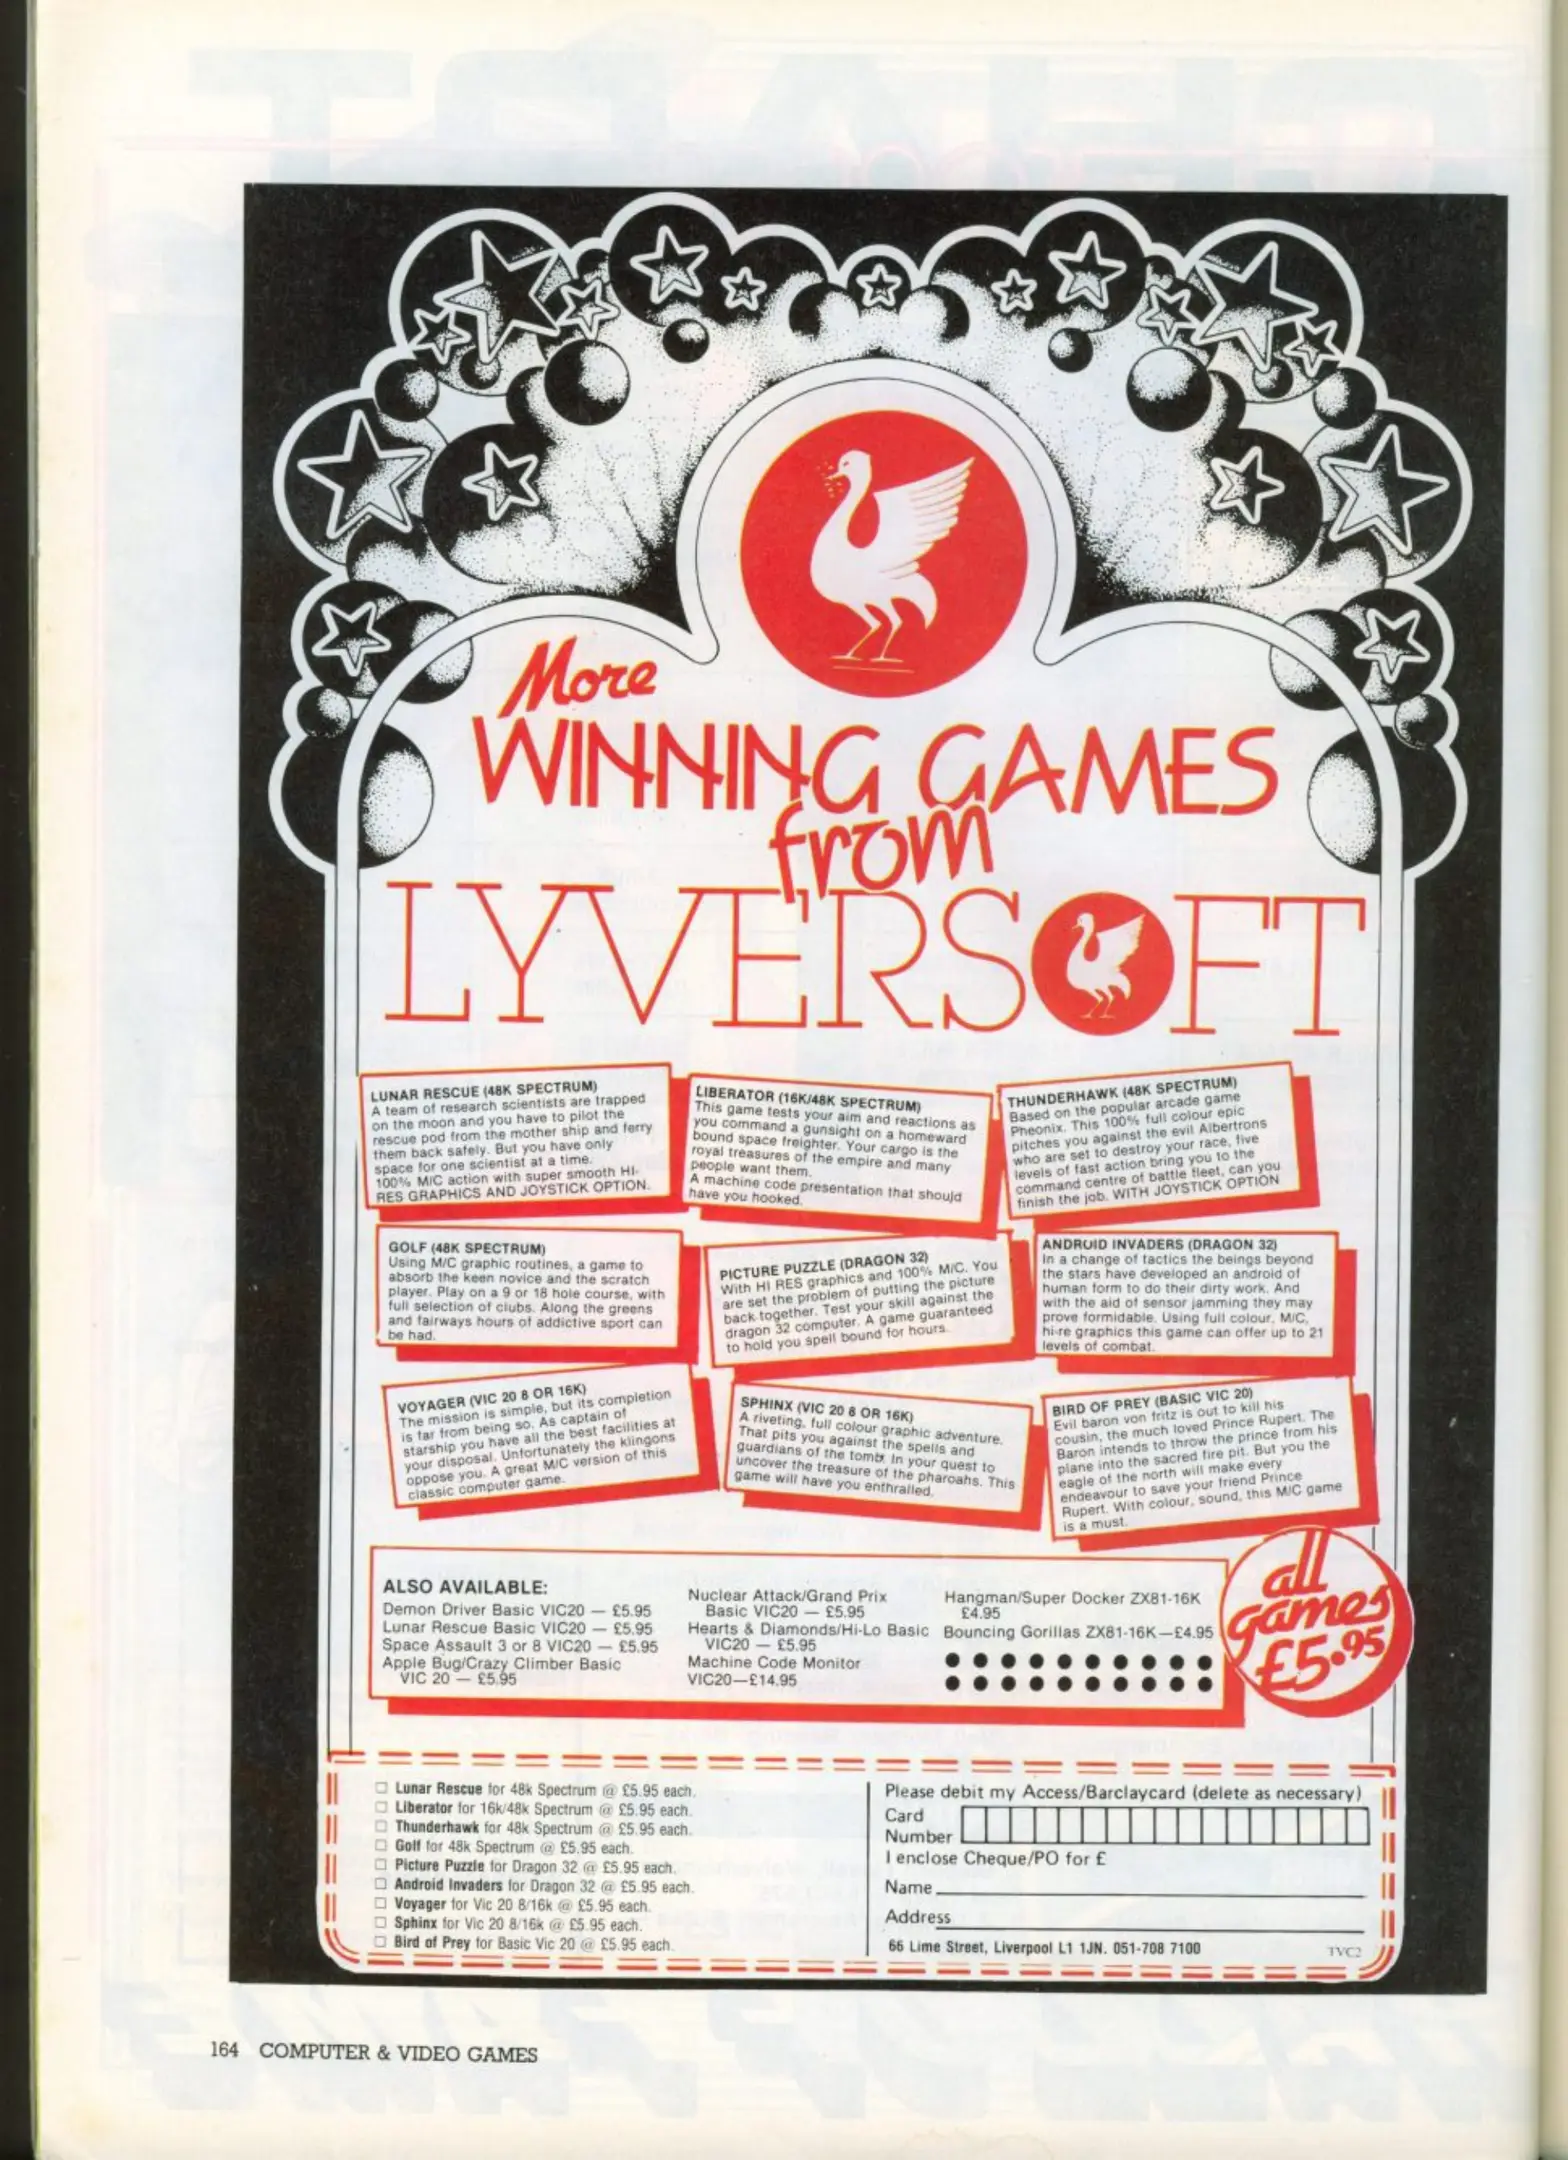 More
WINNING GAMES
from
LYVERSOFT
LUNAR RESCUE (48K SPECTRUM)
A team of research scientists are trapped
on the moon and you have to pilot the
rescue pod from the mother ship and ferry
them back safely. But you have only
space for one scientist at a time.
100% M/C action with super smooth HI-
RES GRAPHICS AND JOYSTICK OPTION.
LIBERATOR (16K/48K SPECTRUM)
This game tests your aim and reactions as
you command a gunsight on a homeward
bound space freighter. Your cargo is the
royal treasures of the empire and many
people want them.
A machine code presentation that should
have you hooked.
THUNDERHAWK (48K SPECTRUM)
Based on the popular arcade game
Pheonix. This 100% full colour epic
pitches you against the evil Albertrons
who are set to destroy your race, five
levels of fast action bring you to the
command centre of battle fleet, can you
finish the job. WITH JOYSTICK OPTION
GOLF (48K SPECTRUM)
Using M/C graphic routines, a game to
absorb the keen novice and the scratch
player. Play on a 9 or 18 hole course, with
full selection of clubs. Along the greens
and fairways hours of addictive sport can
be had.
PICTURE PUZZLE (DRAGON 32)
With HI RES graphics and 100% M/C. You
are set the problem of putting the picture
back together. Test your skill against the
dragon 32 computer. A game guaranteed
to hold you spell bound for hours.
ANDROID INVADERS (DRAGON 32)
In a change of tactics the beings beyond
the stars have developed an android of
human form to do their dirty work. And
with the aid of sensor jamming they may
prove formidable. Using full colour, M/C,
hi-re graphics this game can offer up to 21
levels of combat.
VOYAGER (VIC 20 8 OR 16K)
The mission is simple, but its completion
is far from being so. As captain of
starship you have all the best facilities at
your disposal. Unfortunately the klingons
oppose you. A great M/C version of this
classic computer game.
SPHINX (VIC 20 8 OR 16K)
A riveting, full colour graphic adventure.
That pits you against the spells and
guardians of the tomb. In your quest to
uncover the treasure of the pharoahs. This
game will have you enthralled.
BIRD OF PREY (BASIC VIC 20)
Evil baron von fritz is out to kill his
cousin, the much loved Prince Rupert. The
Baron intends to throw the prince from his
plane into the sacred fire pit. But you the
eagle of the north will make every
endeavour to save your friend Prince
Rupert. With colour, sound, this M/C game
is a must.
ALSO AVAILABLE:
Demon Driver Basic VIC20 — £5.95
Lunar Rescue Basic VIC20 — £5.95
Space Assault 3 or 8 VIC20 — £5.95
Apple Bug/Crazy Climber Basic
VIC 20 — £5.95
Nuclear Attack/Grand Prix
Basic VIC20 — £5.95
Hearts & Diamonds/Hi-Lo Basic
VIC20 — £5.95
Machine Code Monitor
VIC20—£14.95
Hangman/Super Docker ZX81-16K
£4.95
Bouncing Gorillas ZX81-16K—£4.95
all
games
£5.95
Lunar Rescue for 48k Spectrum @ £5.95 each.
Liberator for 16k/48k Spectrum @ £5.95 each.
Thunderhawk for 48k Spectrum @ £5.95 each.
Golf for 48k Spectrum @ £5.95 each.
Picture Puzzle for Dragon 32 @ £5.95 each.
Android Invaders for Dragon 32 @ £5.95 each.
Voyager for Vic 20 8/16k @ £5.95 each.
Sphinx for Vic 20 8/16k @ £5.95 each.
Bird of Prey for Basic Vic 20 @ £5.95 each.
Please debit my Access/Barclaycard (delete as necessary)
Card
Number
I enclose Cheque/PO for £
Name
Address
66 Lime Street, Liverpool L1 1JN. 051-708 7100
TVC2
164 COMPUTER & VIDEO GAMES